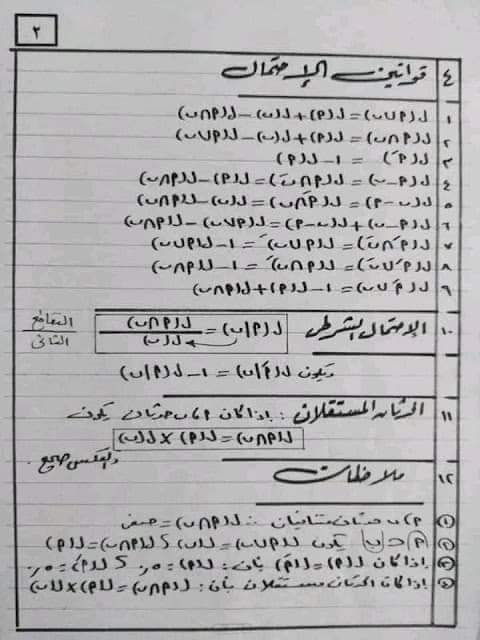 ٢
٤ قوانين الإحتمال
١ ل(P∪ب) = ل(P) + ل(ب) - ل(P∩ب)
٢ ل(P∩ب) = ل(P) + ل(ب) - ل(P∪ب)
٣ ل(Ṕ) = ١ - ل(P)
٤ ل(P-ب) = ل(P∩ب́) = ل(P) - ل(P∩ب)
٥ ل(ب-P) = ل(Ṕ∩ب) = ل(ب) - ل(P∩ب)
٦ ل(P-ب) + ل(ب-P) = ل(P∪ب) - ل(P∩ب)
٧ ل(Ṕ∩ب́) = ل(P∪ب)́ = ١ - ل(P∪ب)
٨ ل(Ṕ∪ب́) = ل(P∩ب)́ = ١ - ل(P∩ب)
٩ ل(Ṕ∪ب) = ١ - ل(P) + ل(P∩ب)
١٠ الإحتمال الشرطى ل(P|ب) = ل(P∩ب) / ل(ب) التقاطع / الثانى
ويكون ل(Ṕ|ب) = ١ - ل(P|ب)
١١ الحدثان المستقلان : إذا كان P، ب حدثان يكون
ل(P∩ب) = ل(P) × ل(ب)
والعكس صحيح .
١٢ ملاحظات
① P، ب حدثان متنافيان ∴ ل(P∩ب) = صفر
② P ⊂ ب يكون ل(P∪ب) = ل(ب) ، ل(P∩ب) = ل(P)
③ إذا كان ل(P) = ل(Ṕ) فإن : ل(P) = ٠٫٥ ، ل(Ṕ) = ٠٫٥
④ إذا كان الحدثان مستقلان فإن : ل(P∩ب) = ل(P) × ل(ب)